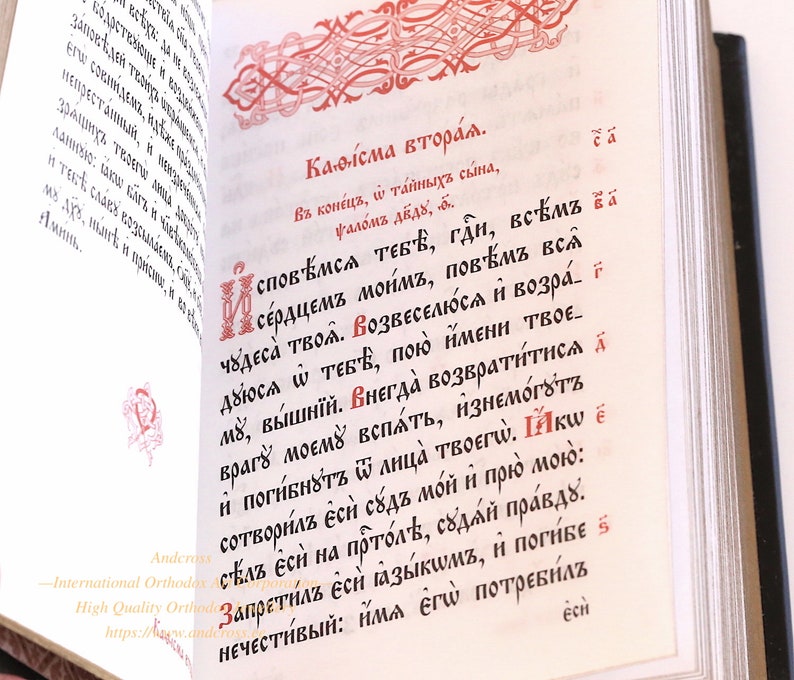 всѣ́хъ: да не возлежа́
бо́дрствующе и воздви́же
за́повѣдей твои́хъ
є҆гѡ̀ совни́демъ, и҆дѣ́же пра́зднꙋ
непреста́нный, и҆ неизрече́нн
зрѧ́щихъ твоегѡ̀ лица̀ добро́тꙋ
ла́ннꙋю: ꙗ҆́кѡ бл҃гъ и҆ чл҃вѣколю́б
и҆ тебѣ̀ сла́вꙋ возсыла́емъ,
мꙋ̀ дх҃ꙋ, ны́нѣ и҆ при́снѡ, и҆ во вѣ́
А҆ми́нь.
Каѳі́сма втора́ѧ.
Въ коне́цъ, ѡ҆ та́йныхъ сы́на,
ѱало́мъ дв҃дꙋ, ѳ҃.
с҃ а҃
И҆сповѣ́мсѧ тебѣ̀, гдⷭ҇и, всѣ́мъ
в҃ а҃
се́рдцемъ мои́мъ, повѣ́мъ всѧ̑
чꙋдеса̀ твоѧ̑. Возвеселю́сѧ и҆ возра́-
г҃
дꙋюсѧ ѡ҆ тебѣ̀, пою̀ и҆́мени твое-
мꙋ̀, вы́шнїй. Внегда̀ возврати́тисѧ
д҃
врагꙋ̀ моемꙋ̀ вспѧ́ть, и҆знемо́гꙋтъ
и҆ поги́бнꙋтъ ѿ лица̀ твоегѡ̀. Ꙗ҆́кѡ
є҃
сотвори́лъ є҆сѝ сꙋ́дъ мо́й и҆ прю̀ мою̀:
сѣ́лъ є҆сѝ на прⷭ҇то́лѣ, сꙋдѧ́й пра́вдꙋ.
Запрети́лъ є҆сѝ ꙗ҆зы́кѡмъ, и҆ поги́бе
ѕ҃
нечести́вый: и҆́мѧ є҆гѡ̀ потреби́лъ
є҆сѝ
Andcross
—International Orthodox Art Corporation—
High Quality Orthodox
https://www.andcross.